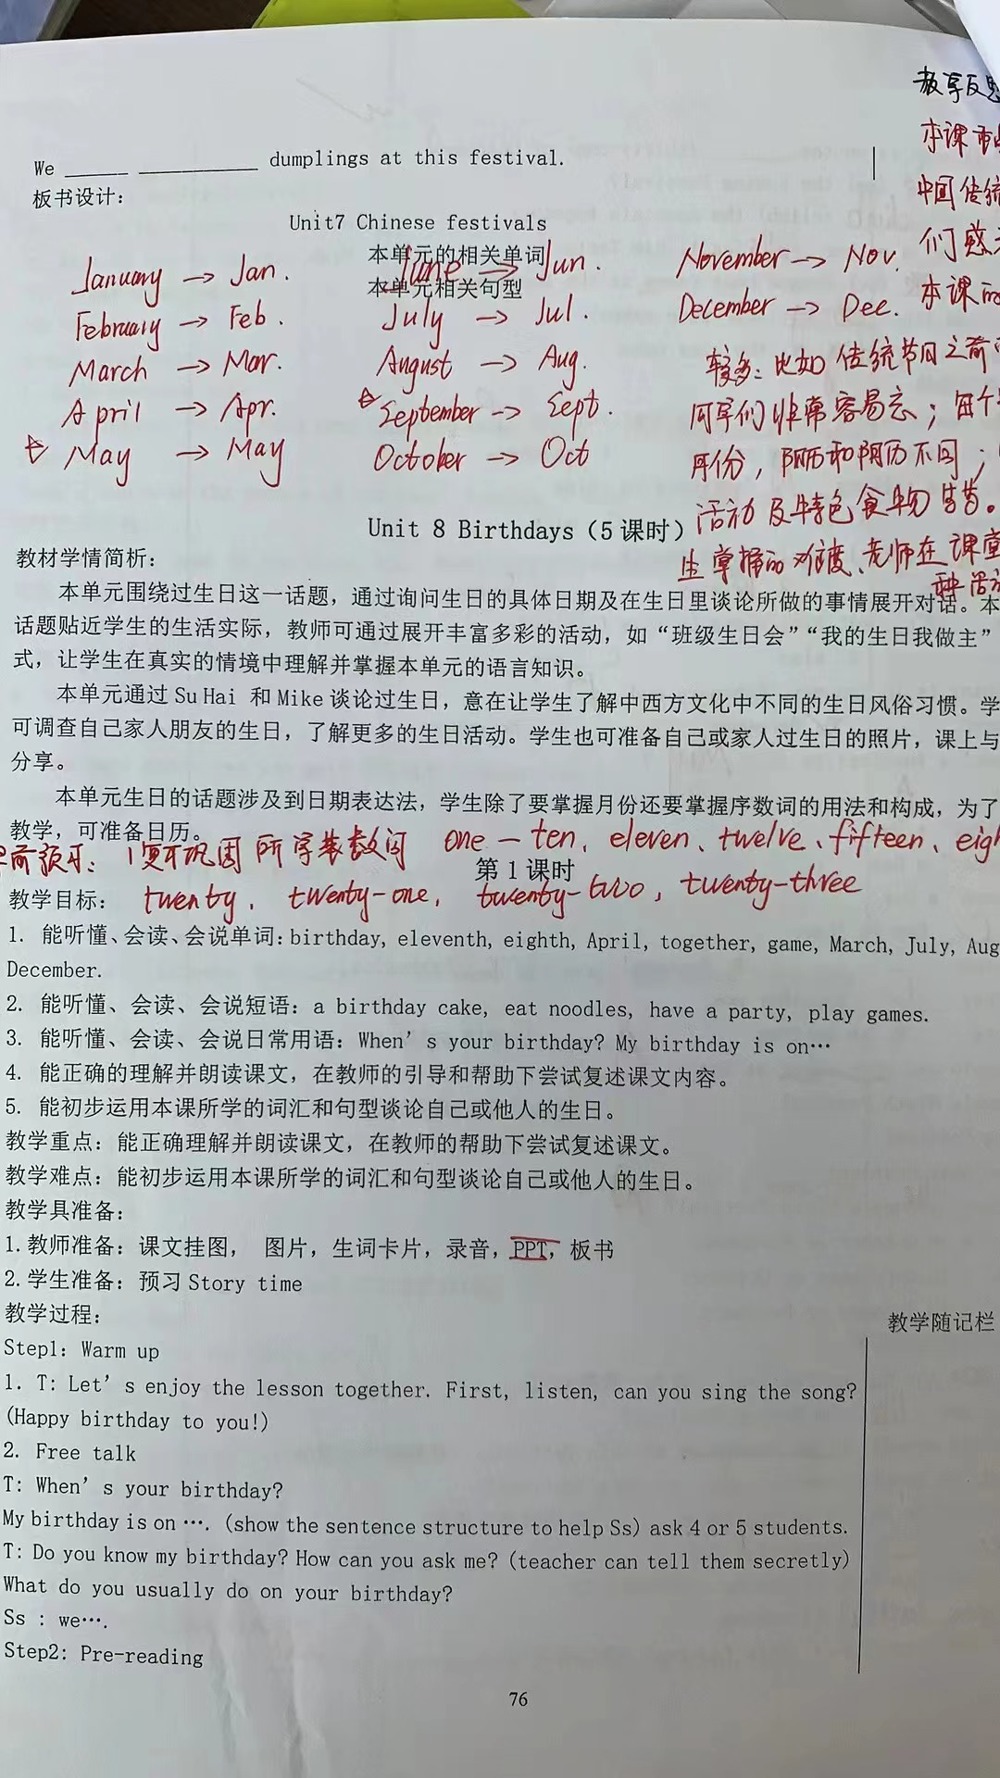 教学反思
本课
We ______ ___________ dumplings at this festival.
中国传统
板书设计：
们
Unit7 Chinese festivals
本单元的相关单词
本单元相关句型
January → Jan.
June → Jun.
November → Nov.
本课的
February → Feb.
July → Jul.
December → Dec.
March → Mar.
August → Aug.
较多：比如传统节日之前
April → Apr.
☆ September → Sept.
同学们非常容易忘；每个
☆ May → May
October → Oct
月份，阳历和阴历不同；
活动及特色食物等等。
Unit 8 Birthdays（5 课时）
生掌握的难度、老师在课堂
种活
教材学情简析：
本单元围绕过生日这一话题，通过询问生日的具体日期及在生日里谈论所做的事情展开对话。本
话题贴近学生的生活实际，教师可通过展开丰富多彩的活动，如“班级生日会”“我的生日我做主”
式，让学生在真实的情境中理解并掌握本单元的语言知识。
本单元通过 Su Hai 和 Mike 谈论过生日，意在让学生了解中西方文化中不同的生日风俗习惯。学
可调查自己家人朋友的生日，了解更多的生日活动。学生也可准备自己或家人过生日的照片，课上与
分享。
本单元生日的话题涉及到日期表达法，学生除了要掌握月份还要掌握序数词的用法和构成，为了
教学，可准备日历。
前预习：1复习巩固所学基数词 one — ten、eleven、twelve、fifteen、eigh
第 1 课时
twenty, twenty-one, twenty-two, twenty-three
教学目标：
1. 能听懂、会读、会说单词：birthday, eleventh, eighth, April, together, game, March, July, Aug
December.
2. 能听懂、会读、会说短语：a birthday cake, eat noodles, have a party, play games.
3. 能听懂、会读、会说日常用语：When’s your birthday? My birthday is on…
4. 能正确的理解并朗读课文，在教师的引导和帮助下尝试复述课文内容。
5. 能初步运用本课所学的词汇和句型谈论自己或他人的生日。
教学重点：能正确理解并朗读课文，在教师的帮助下尝试复述课文。
教学难点：能初步运用本课所学的词汇和句型谈论自己或他人的生日。
教学具准备：
1.教师准备：课文挂图， 图片，生词卡片，录音，PPT，板书
2.学生准备：预习 Story time
教学过程：
教学随记栏
Step1: Warm up
1. T: Let’s enjoy the lesson together. First, listen, can you sing the song?
(Happy birthday to you!)
2. Free talk
T: When’s your birthday?
My birthday is on …. (show the sentence structure to help Ss) ask 4 or 5 students.
T: Do you know my birthday? How can you ask me? (teacher can tell them secretly)
What do you usually do on your birthday?
Ss : we….
Step2: Pre-reading
76